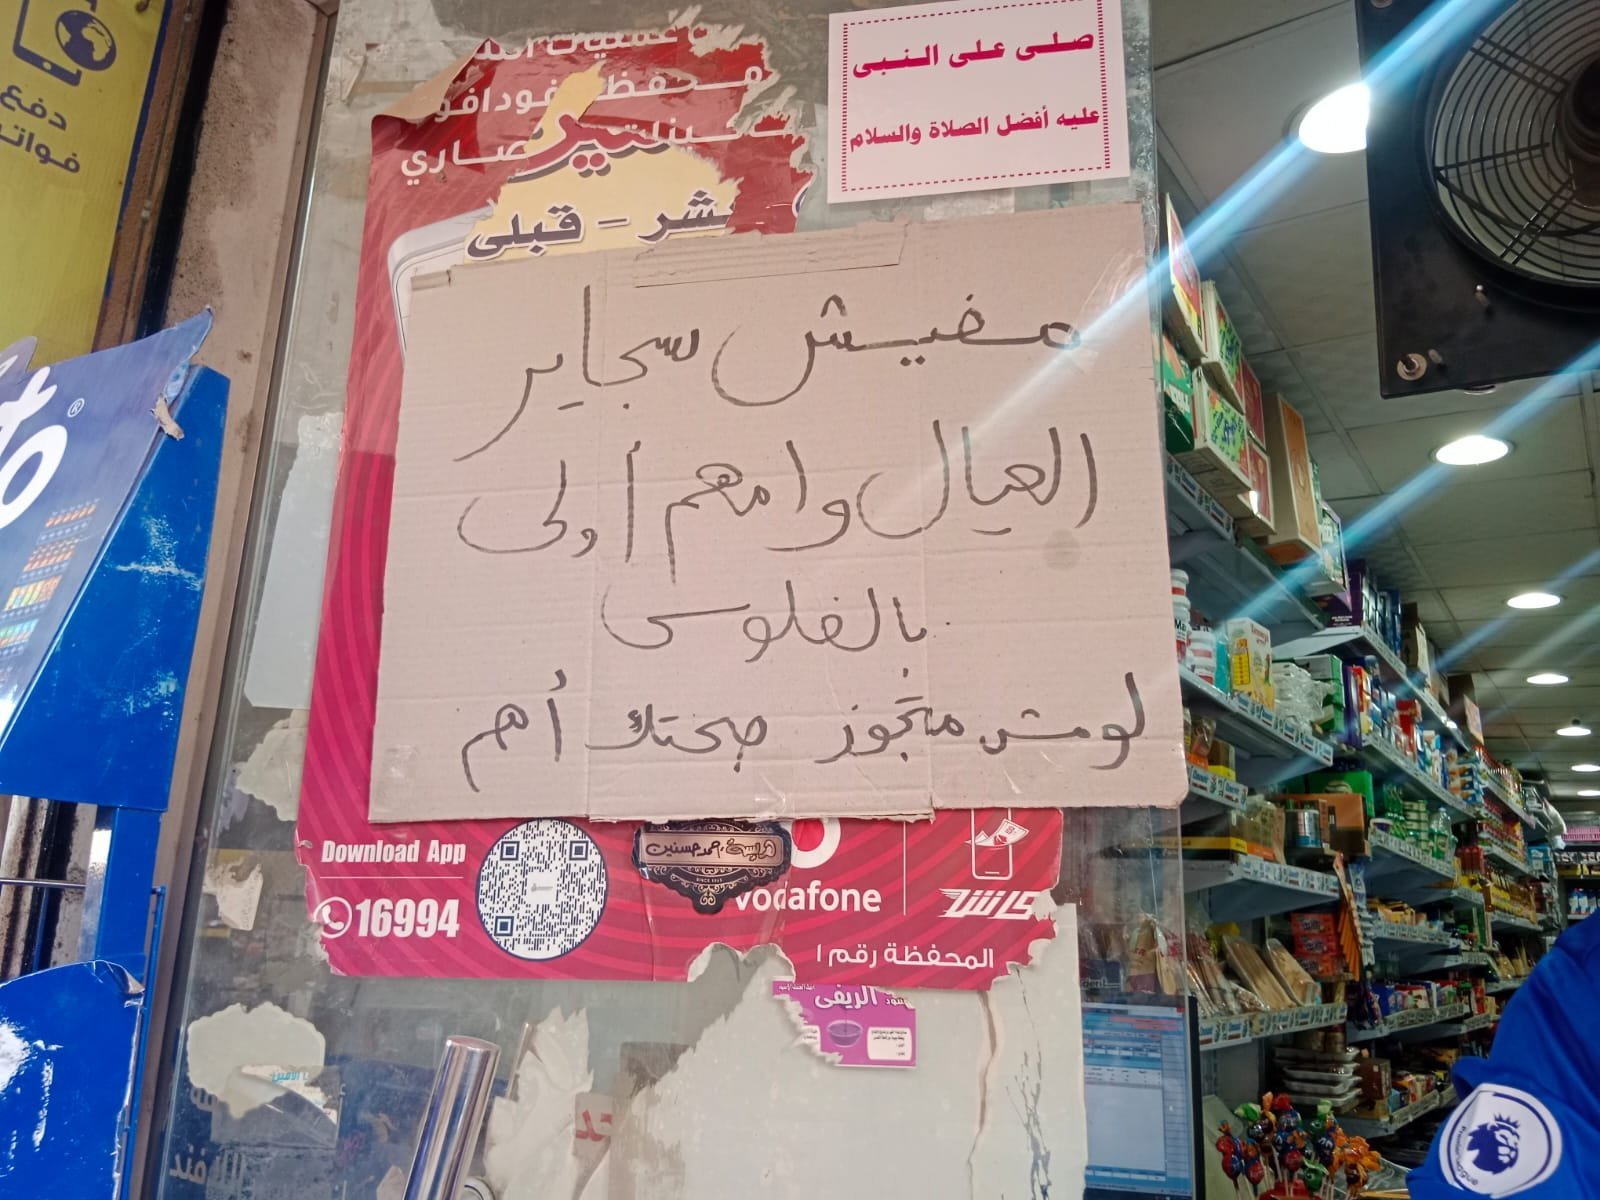 دفع
صلى على النبى
عليه أفضل الصلاة والسلام
قبلى
مفيش سجاير
العيال وامهم أولى
بالفلوس
لو مش متجوز صحتك أهم
Download App
16994
أحمد حسنين
vodafone
كاش
المحفظة رقم ١
الريفى